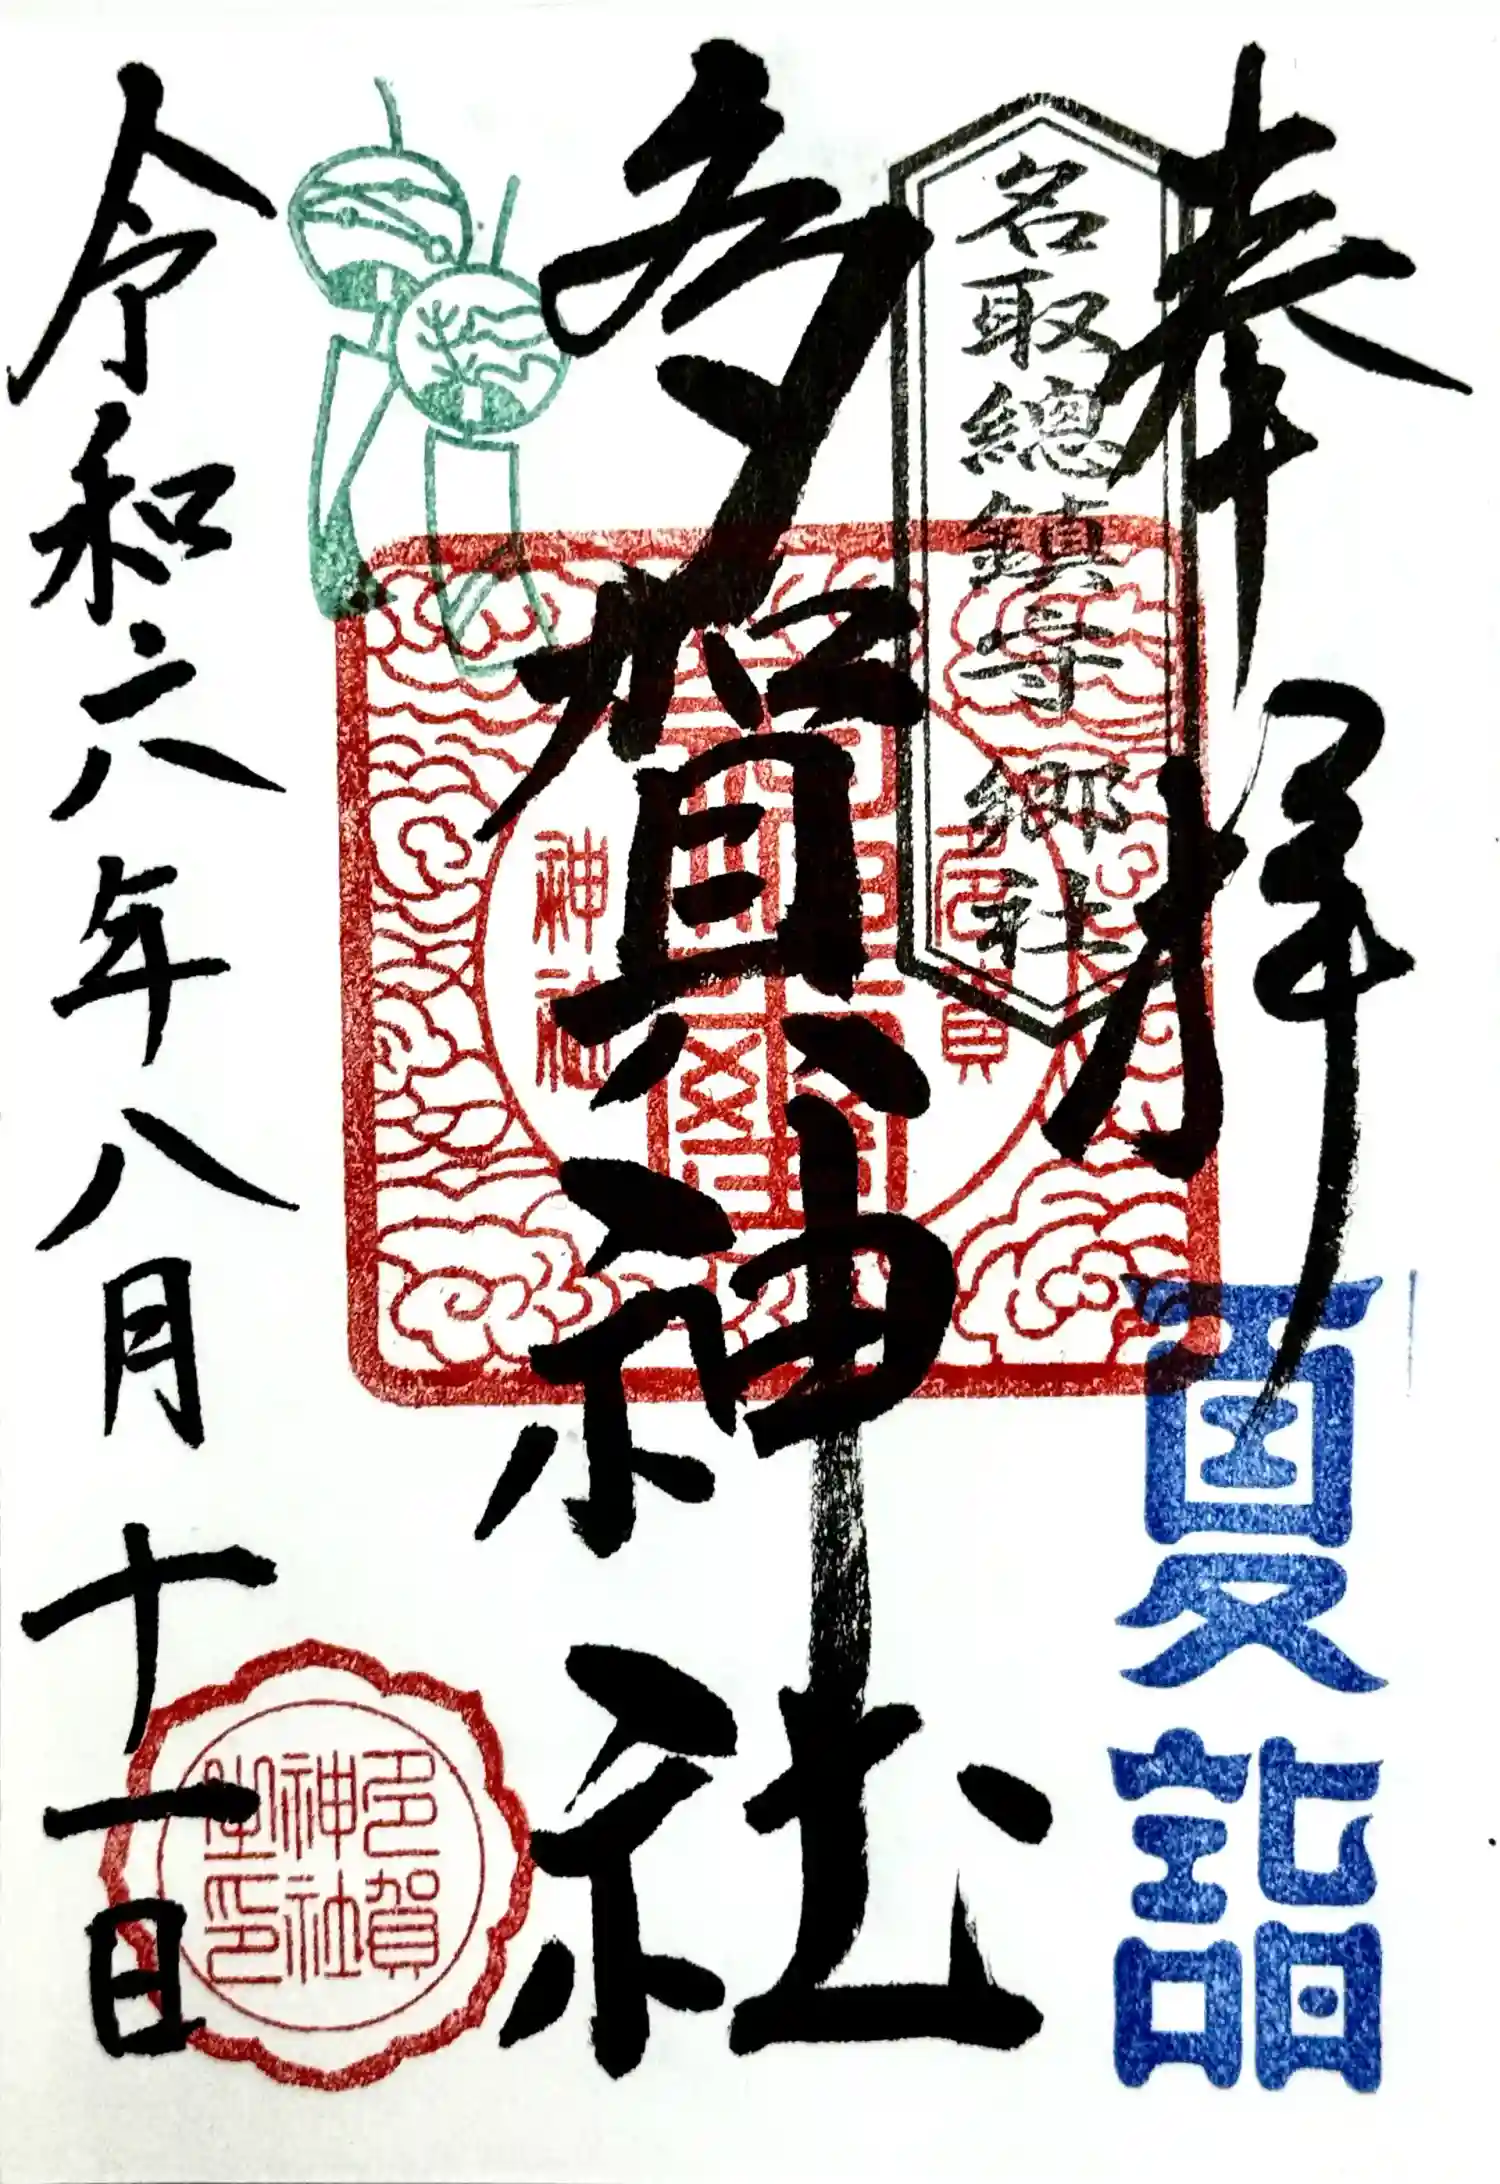 奉拝
名取總鎮守 郷社
夏詣
多賀神社
令和六年八月十一日
多賀
神社
之印